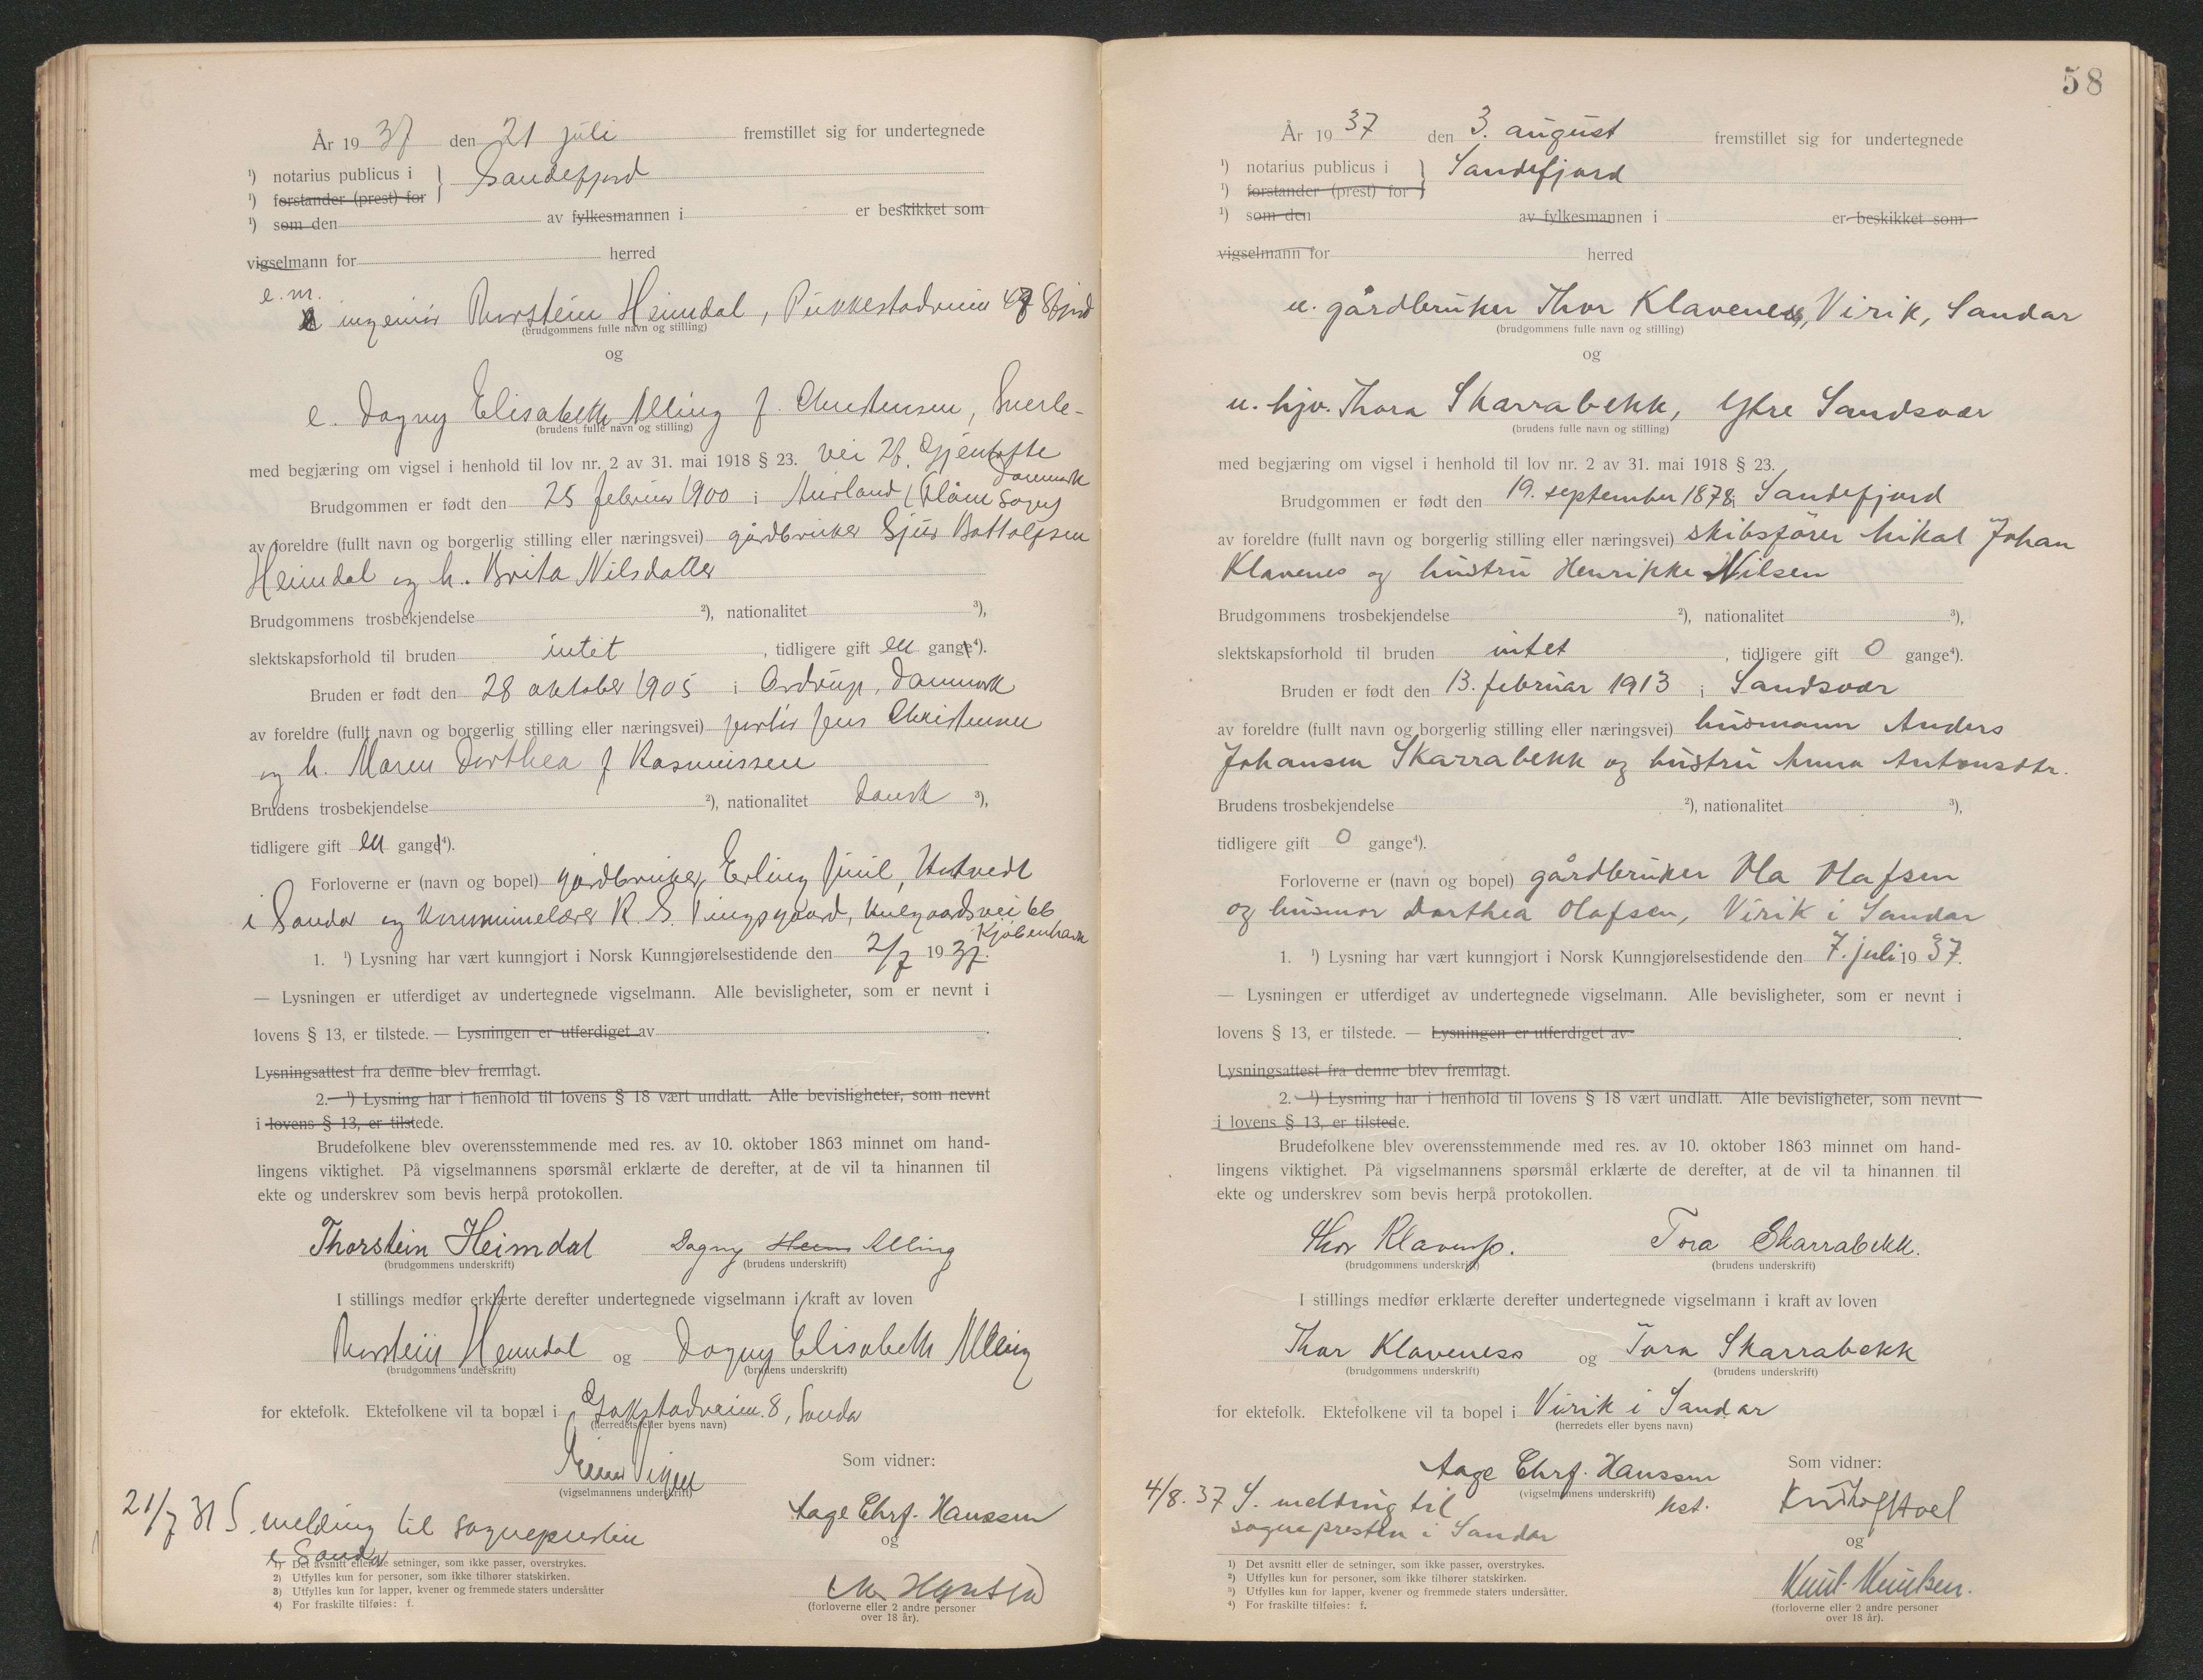 År 19 37 den 21 juli fremstillet sig for undertegnede
¹) notarius publicus i } Sandefjord
¹) forstander (prest) for
¹) som den av fylkesmannen i er beskikket som
vigselmann for herred
e. m.
ingeniør Thorstein Heimdal, Pukkestadveien 48 Sfjord
(brudgommens fulle navn og stilling)
og
e. Dagny Elisabeth Alling f. Christensen,
(brudens fulle navn og stilling)
med begjæring om vigsel i henhold til lov nr. 2 av 31. mai 1918 § 23. vei 28. Gjentofte
Danmark
Brudgommen er født den 25 februar 1900 i Aurland (Flåm Sogn
av foreldre (fullt navn og borgerlig stilling eller næringsvei) gårdbruker Sjur Bottolfsen
Heimdal og h. Brita Nilsdatter
Brudgommens trosbekjendelse ²), nationalitet ³),
slektskapsforhold til bruden intet , tidligere gift en gange⁴).
Bruden er født den 28 oktober 1905 i Ordrup, Danmark
av foreldre (fullt navn og borgerlig stilling eller næringsvei) Jens Christensen
og h. Maren Dorthea f Rasmussen
Brudens trosbekjendelse ²), nationalitet dansk ³),
tidligere gift en gange⁴).
Forloverne er (navn og bopel) gårdbruker Erling Juul, Hotvedt
i Sandar og kommunelærer R. S. Vingsgaard, 66
Kjøbenhavn
1. ¹) Lysning har vært kunngjort i Norsk Kunngjørelsestidende den 2/7 19 37.
— Lysningen er utferdiget av undertegnede vigselmann. Alle bevisligheter, som er nevnt i
lovens § 13, er tilstede. — Lysningen er utferdiget av .
Lysningsattest fra denne blev fremlagt.
2. ¹) Lysning har i henhold til lovens § 18 vært undlatt. Alle bevisligheter, som nevnt
i lovens § 13, er tilstede.
Brudefolkene blev overensstemmende med res. av 10. oktober 1863 minnet om hand-
lingens viktighet. På vigselmannens spørsmål erklærte de derefter, at de vil ta hinannen til
ekte og underskrev som bevis herpå protokollen.
Thorstein Heimdal Dagny Heim Alling
(brudgommens underskrift) (brudens underskrift)
I stillings medfør erklærte derefter undertegnede vigselmann i kraft av loven
Thorstein Heimdal og Dagny Elisabeth Alling
(brudgommens underskrift) (brudens underskrift)
for ektefolk. Ektefolkene vil ta bopæl i Gokstadveien 8, Sandar
(herredets eller byens navn)
Som vidner:
(vigselmannens underskrift)
21/7 37 S. melding til sognepresten
i Sandar
Aage Chrf. Hanssen
og
M. Hansen
(forloverne eller 2 andre personer
over 18 år).
1) Det avsnitt eller de setninger, som ikke passer, overstrykes.
2) Utfylles kun for personer, som ikke tilhører statskirken.
3) Utfylles kun for lapper, kvener og fremmede staters undersåtter
4) For fraskilte tilføies: f.
58
År 19 37 den 3. august fremstillet sig for undertegnede
¹) notarius publicus i } Sandefjord
¹) forstander (prest) for
¹) som den av fylkesmannen i er beskikket som
vigselmann for herred
u. gårdbruker Thor Klaveness, Virik, Sandar
(brudgommens fulle navn og stilling)
og
u. hjv. Thora Skarrabekk, Ytre Sandsvær
(brudens fulle navn og stilling)
med begjæring om vigsel i henhold til lov nr. 2 av 31. mai 1918 § 23.
Brudgommen er født den 19. september 1878 i Sandefjord
av foreldre (fullt navn og borgerlig stilling eller næringsvei) skibsfører Mikal Johan
Klavenes og hustru Henrikke Nilsen
Brudgommens trosbekjendelse ²), nationalitet ³),
slektskapsforhold til bruden intet , tidligere gift 0 gange⁴).
Bruden er født den 13. februar 1913 i Sandsvær
av foreldre (fullt navn og borgerlig stilling eller næringsvei) husmann Anders
Johansen Skarrabekk og hustru Anna Antonsdtr.
Brudens trosbekjendelse ²), nationalitet ³),
tidligere gift 0 gange⁴).
Forloverne er (navn og bopel) gårdbruker Ola Olafsen
og husmor Dorthea Olafsen, Virik i Sandar
1. ¹) Lysning har vært kunngjort i Norsk Kunngjørelsestidende den 7. juli 19 37.
— Lysningen er utferdiget av undertegnede vigselmann. Alle bevisligheter, som er nevnt i
lovens § 13, er tilstede. — Lysningen er utferdiget av .
Lysningsattest fra denne blev fremlagt.
2. ¹) Lysning har i henhold til lovens § 18 vært undlatt. Alle bevisligheter, som nevnt
i lovens § 13, er tilstede.
Brudefolkene blev overensstemmende med res. av 10. oktober 1863 minnet om hand-
lingens viktighet. På vigselmannens spørsmål erklærte de derefter, at de vil ta hinannen til
ekte og underskrev som bevis herpå protokollen.
Thor Klaveness. Tora Skarrabekk.
(brudgommens underskrift) (brudens underskrift)
I stillings medfør erklærte derefter undertegnede vigselmann i kraft av loven
Thor Klaveness og Tora Skarrabekk
(brudgommens underskrift) (brudens underskrift)
for ektefolk. Ektefolkene vil ta bopel i Virik i Sandar
(herredets eller byens navn)
Aage Chrf. Hanssen Som vidner:
(vigselmannens underskrift) kst.
4/8. 37 S. melding til
sognepresten i Sandar
og
Knut Knutsen.
(forloverne eller 2 andre personer
over 18 år).
¹) Det avsnitt eller de setninger, som ikke passer, overstrykes.
²) Utfylles kun for personer, som ikke tilhører statskirken.
³) Utfylles kun for lapper, kvener og fremmede staters undersåtter.
⁴) For fraskilte tilføies: f.